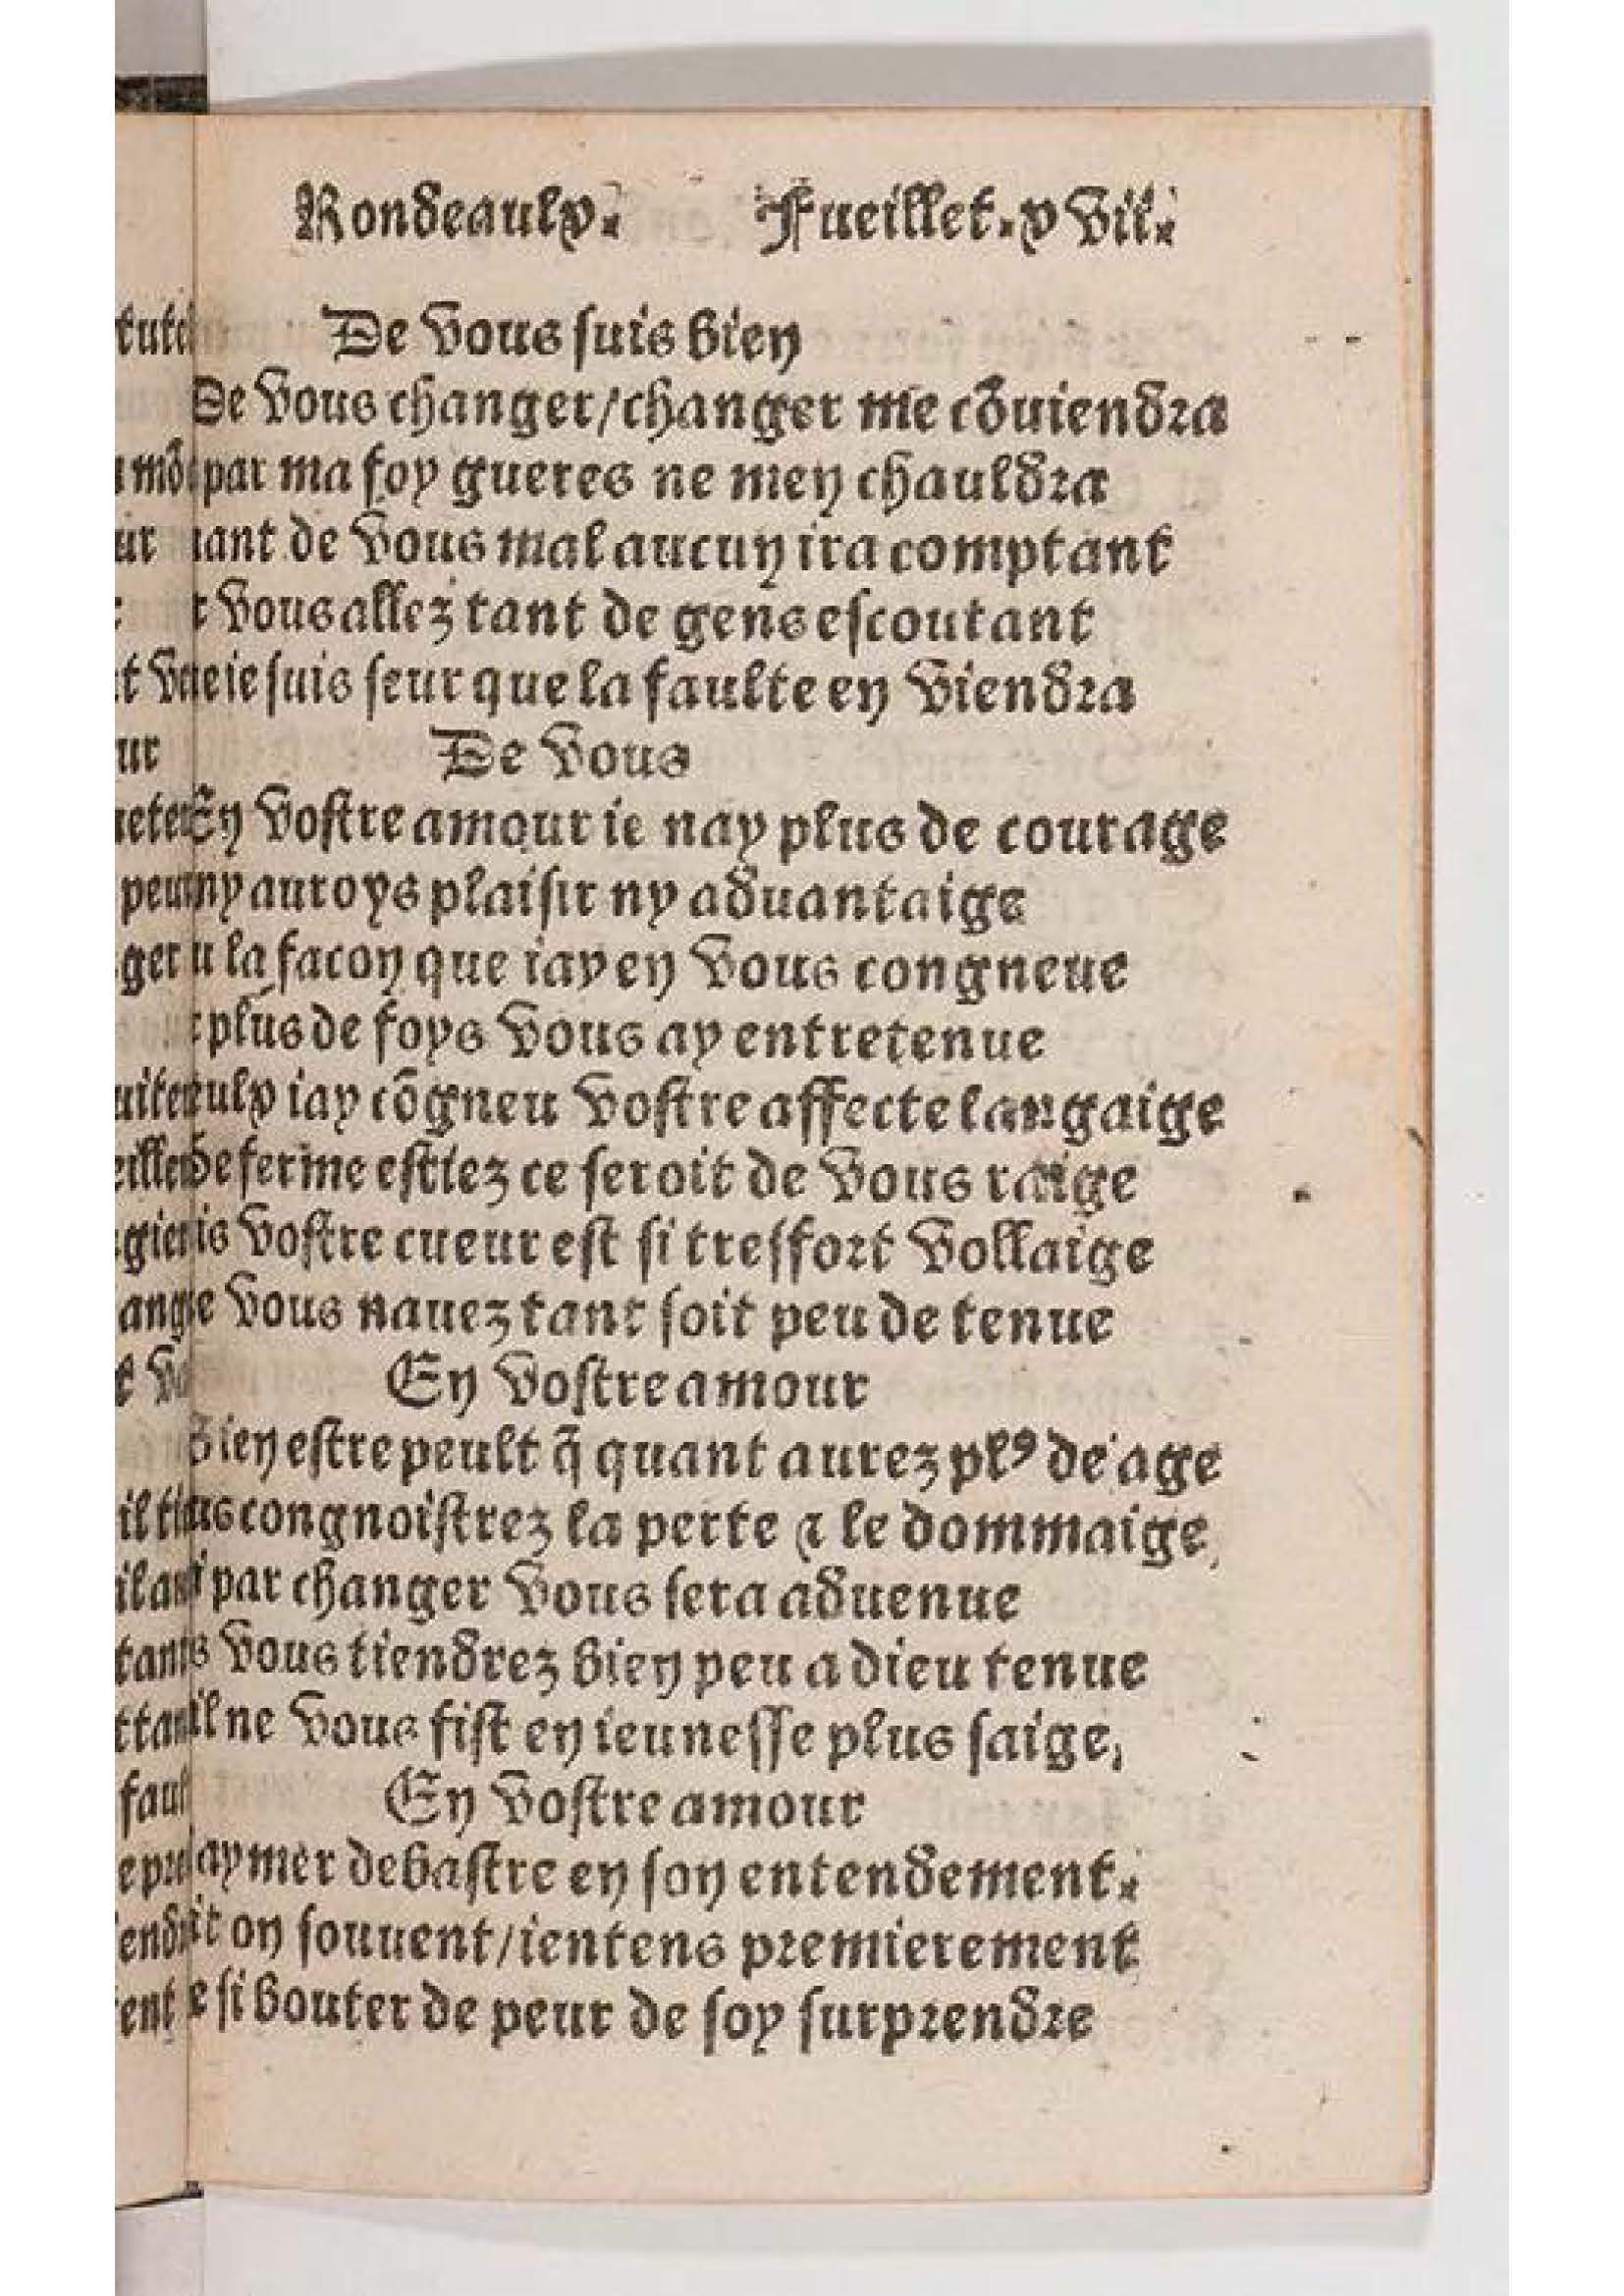 Rondeaulx. Fueillet. xvii.
De vous suis bien
De vous changer/changer me cõuiendra
par ma foy gueres ne men chauldra
de vous mal aucun ira comptant
vous allez tant de gens escoutant
ie suis seur que la faulte en viendra
De vous
En vostre amour ie nay plus de courage
ny auroys plaisir ny aduantaige
la facon que iay en vous congneue
plus de foys vous ay entretenue
iay cõgneu vostre affecte langaige
ferme estiez ce seroit de vous raige
vostre cueur est si tresfort vollaige
vous nauez tant soit peu de tenue
En vostre amour
Bien estre peult q̃ quant aurez plꝰ de age
congnoistrez la perte ⁊ le dommaige
par changer vous sera aduenue
vous tiendrez bien peu a dieu tenue
ne vous fist en ieunesse plus saige,
En vostre amour
aymer debastre en son entendement.
on souuent/ientens premierement
si bouter de peur de soy surprendre